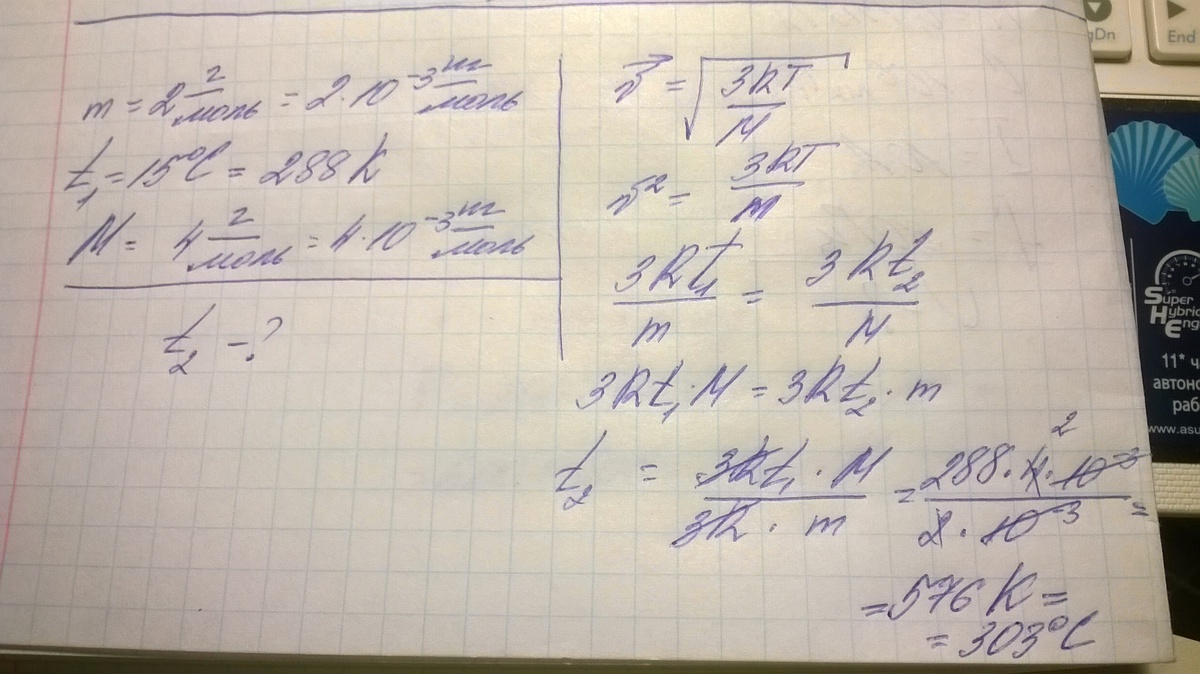 m = 2 г/моль = 2·10⁻³ кг/моль
t₁ = 15°C = 288 K
M = 4 г/моль = 4·10⁻³ кг/моль
t₂ - ?
v⃗ = √(3RT/M)
v² = 3RT/m
3Rt₁/m = 3Rt₂/M
3Rt₁·M = 3Rt₂·m
t₂ = 3Rt₁·M/3R·m = 288·4·10⁻³/2·10⁻³ =
2
= 576 K =
= 303°C
gDn
End
Super
Hybrid
Eng
11* ч
автоно
раб
www.asu